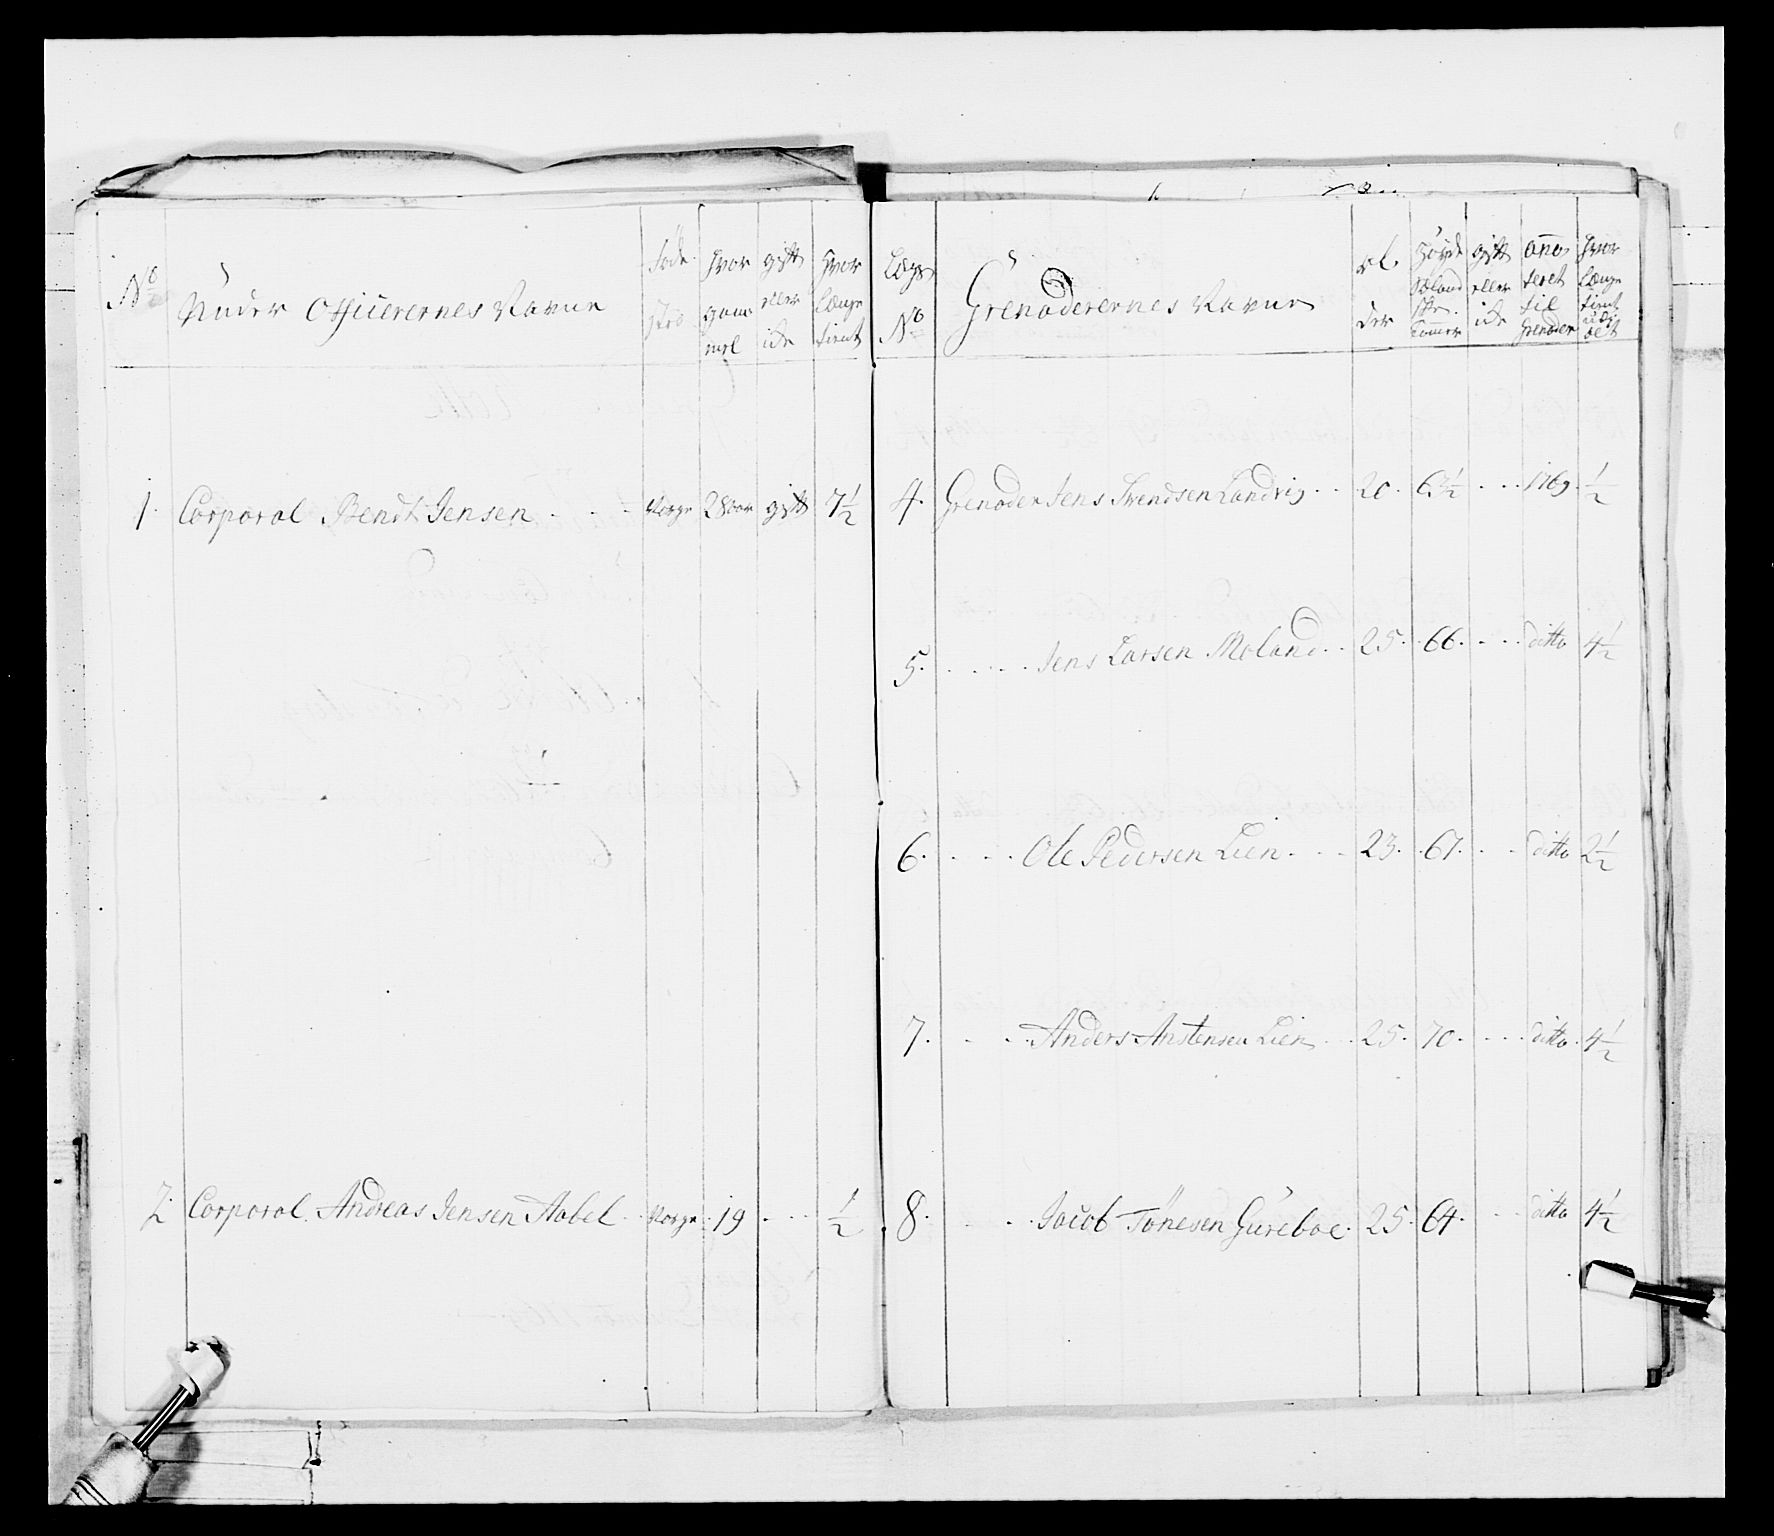 No
Under Officerernes Navne
føde
sted
hvor
gam
mel
gift
eller
icke
hvor
længe
tient
1. Corporal Bendt Jensen Norge 28 aar gift 7½
2. Corporal Andreas Jensen Aabel Norge 19 ½
Lægs
No
Grenaderernes Navne
al
der
Høyde
gift
eller
icke
anno
teret
til
Grenader
hvor
længe
tient
4. Grenader Jens Svendsen Landvig 20. 63½ 1769. ½
5. Jens Larsen Moland 25. 66. ditto 4½
6. Ole Pedersen Lien 23. 67. ditto 2½
7. Anders Anstensen Lien 25. 70. ditto. 4½
8. Jacob Tønesen Gureboe. 25. 64. ditto 4½